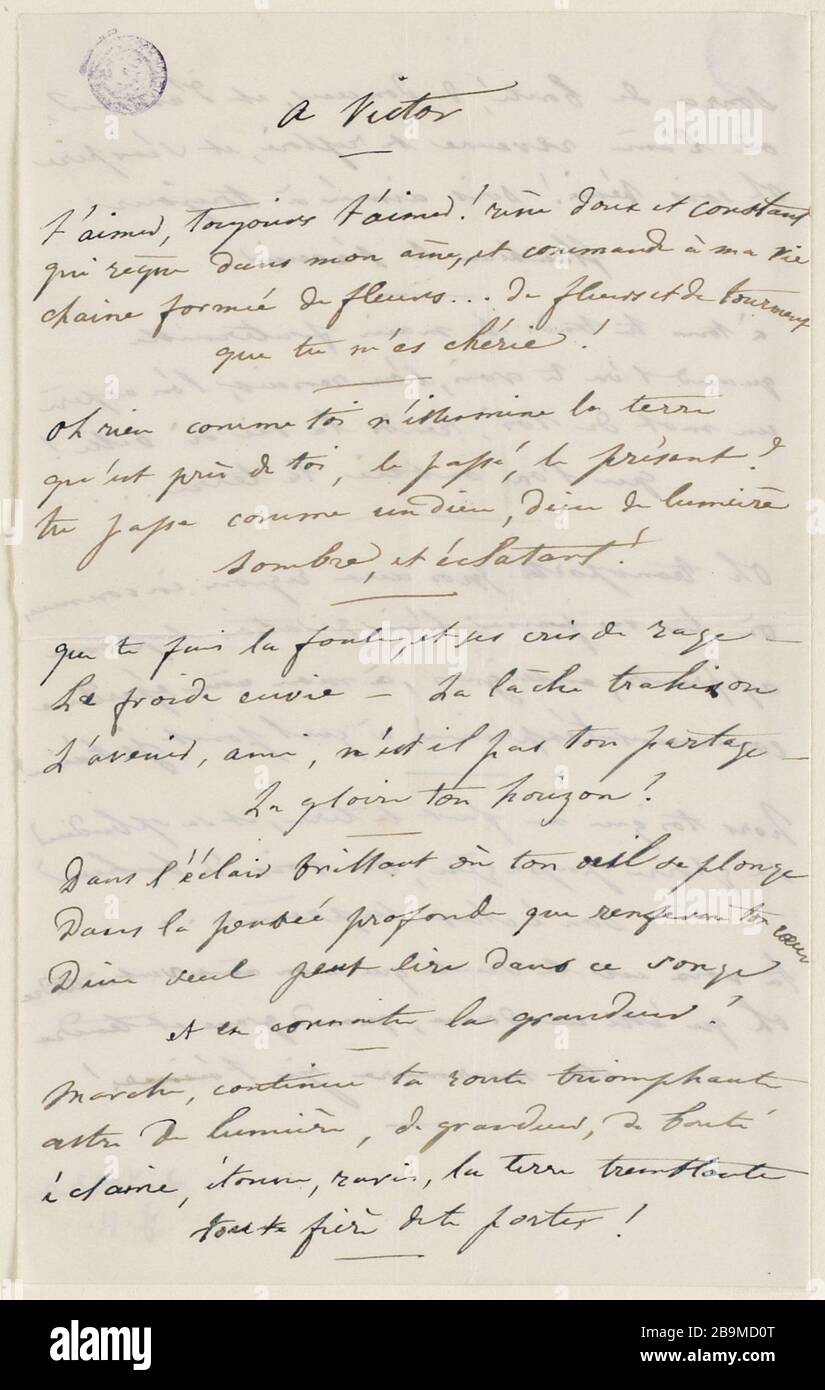 a Victor
t'aimer, toujours t'aimer! rêve doux et constant
qui règne dans mon âme, et commande à ma vie
chaine formée de fleurs... de fleurs et de tourmens
que tu m'es chérie!
oh rien comme toi n'illumine la terre
qu'est près de toi, le passé, le présent?
tu passe comme un dieu, dieu de lumière
sombre, et éclatant!
que te fais la foule, et ses cris de rage –
La froide envie – La lâche trahison
L'avenir, ami, n'est il pas ton partage –
La gloire ton horizon!
Dans l'éclair brillant où ton œil se plonge
Dans la pensée profonde que renferme ton cœur
Dieu seul peut lire dans ce songe
et en connaitre la grandeur!
Marche, continue ta route triomphante
astre de lumière, de grandeur, de bonté
éclaire, étonne, ravis, la terre tremblante
toute fière de te porter!
alamy
Image ID: 2B9MD0T
www.alamy.com